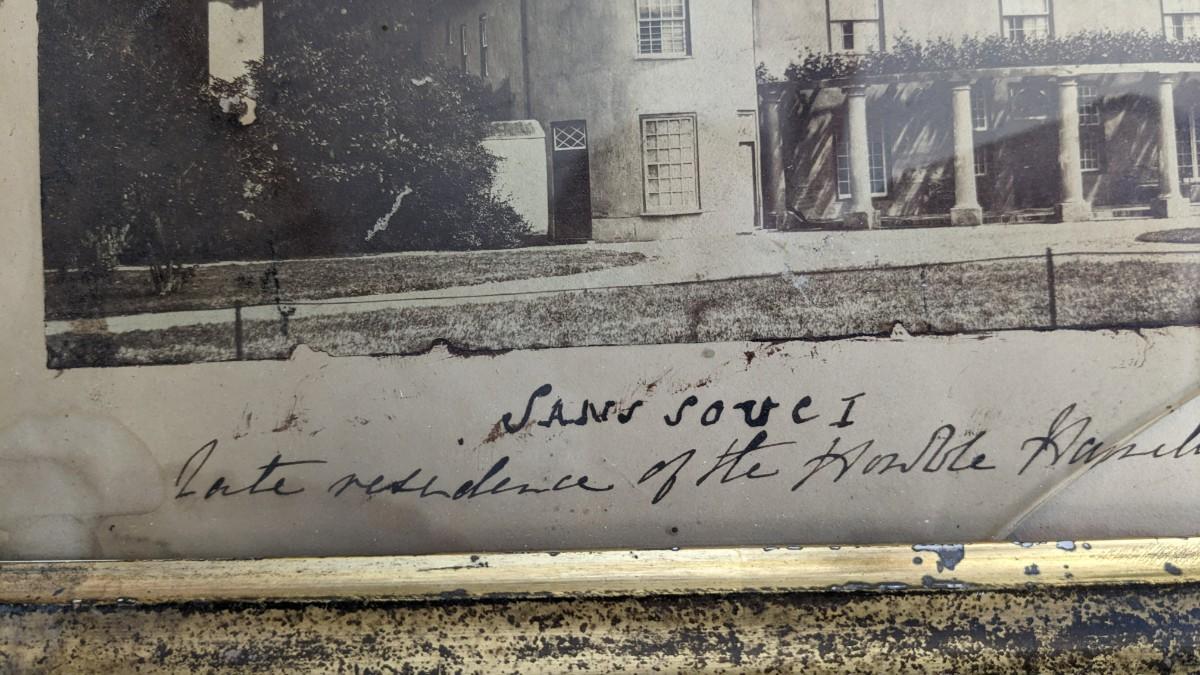 SANS SOUCI
late residence of the Honble